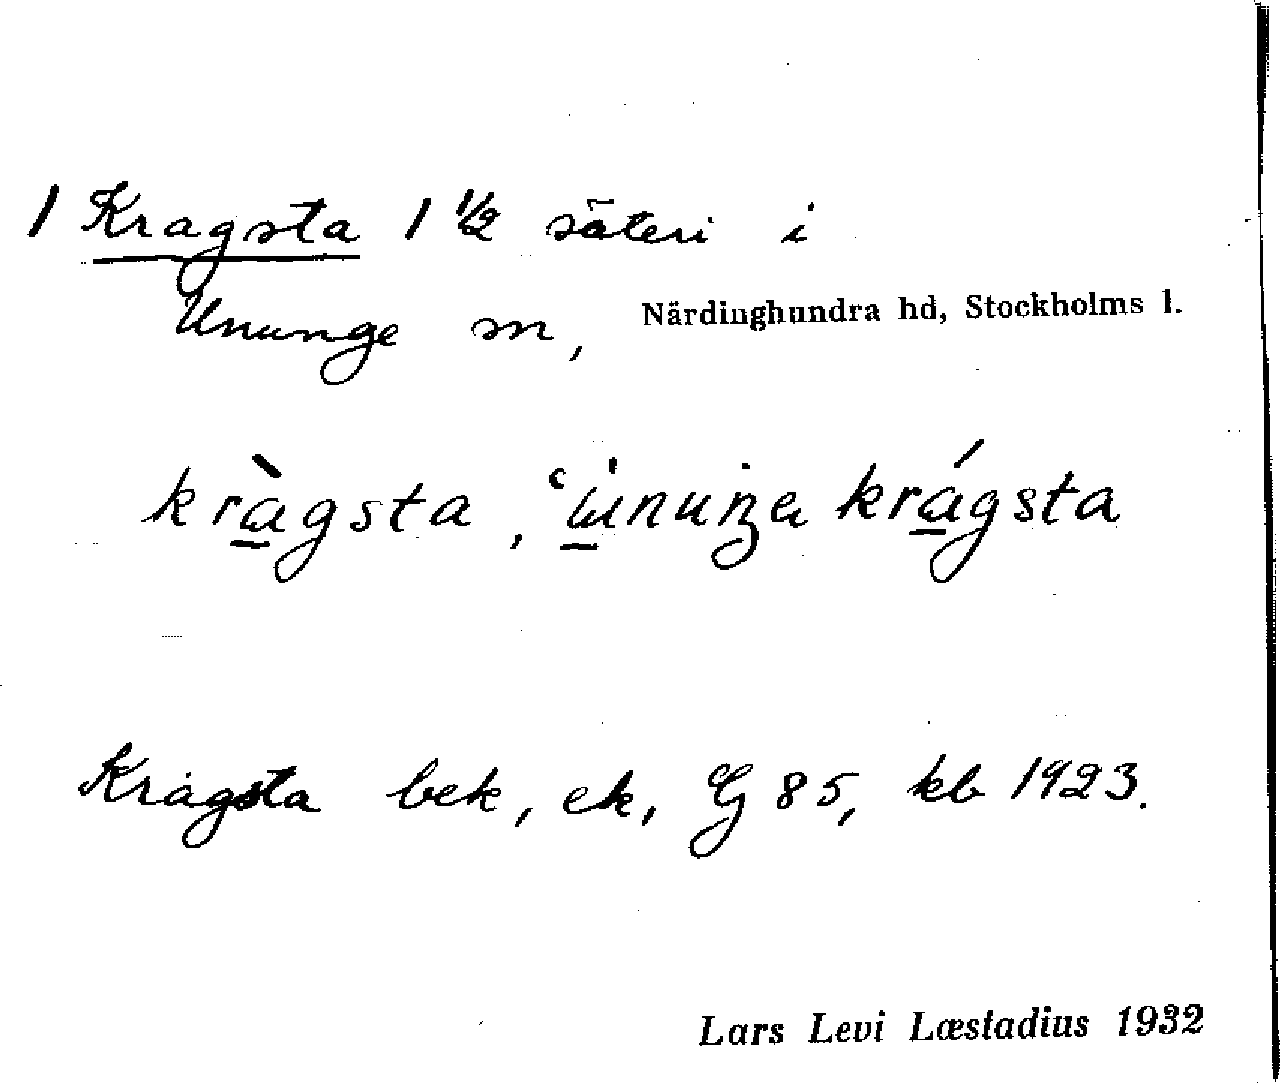 1 Kragsta 1 ½ säteri i
Ununge sn, Närdinghundra hd, Stockholms l.
kràgsta, ùnuŋa krágsta
Kragsta bek, ek, Gj 85, kb 1923.
Lars Levi Læstadius 1932